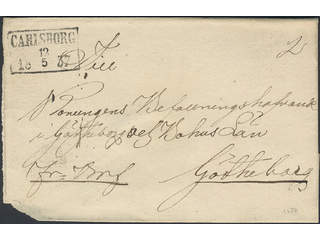 CARLSBORG
12
18 5 37
Till
Konungens Befallningshafvande
i Götheborgs och Bohus Län
Götheborg
fr: Bref